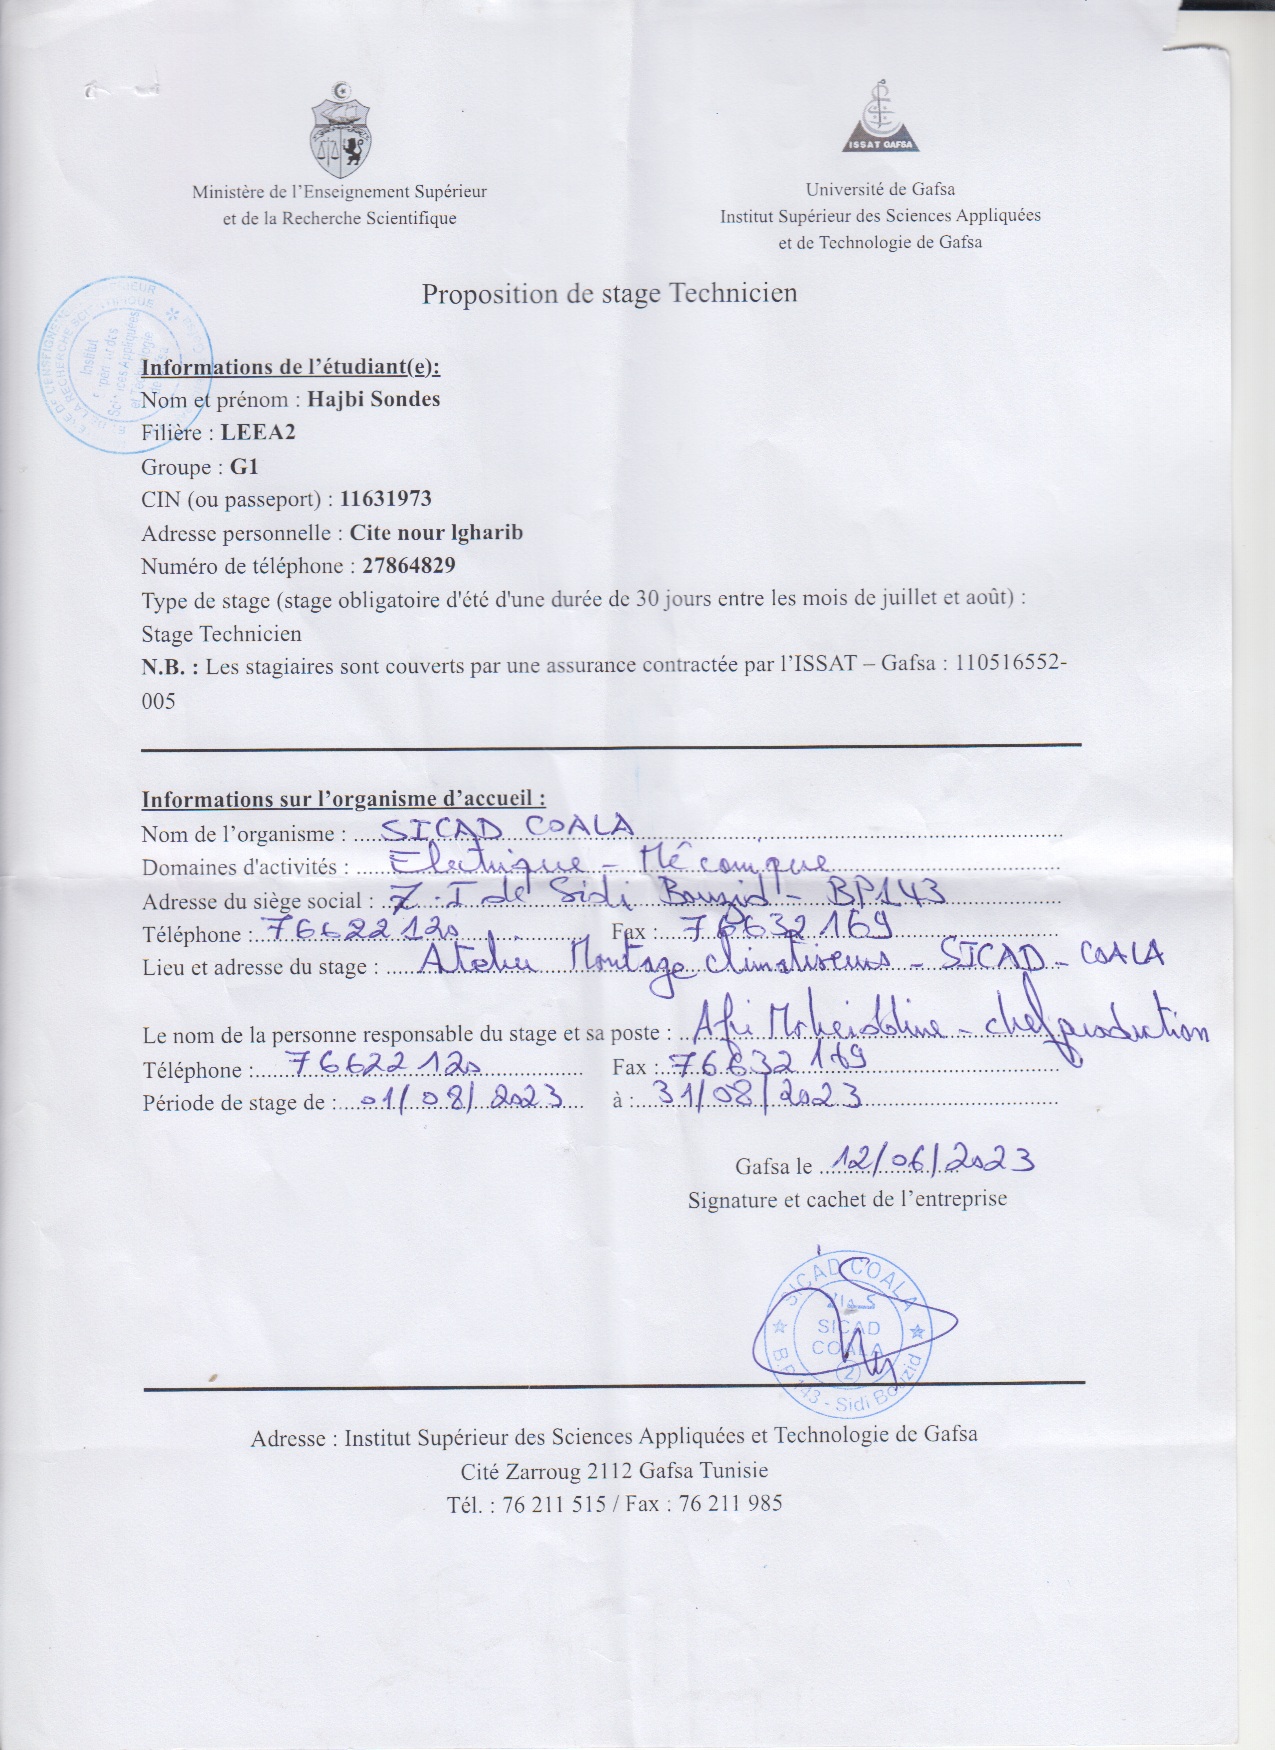 ISSAT GAFSA
Ministère de l'Enseignement Supérieur
et de la Recherche Scientifique
Université de Gafsa
Institut Supérieur des Sciences Appliquées
et de Technologie de Gafsa
Proposition de stage Technicien
Informations de l'étudiant(e):
Nom et prénom : Hajbi Sondes
Filière : LEEA2
Groupe : G1
CIN (ou passeport) : 11631973
Adresse personnelle : Cite nour lgharib
Numéro de téléphone : 27864829
Type de stage (stage obligatoire d'été d'une durée de 30 jours entre les mois de juillet et août) :
Stage Technicien
N.B. : Les stagiaires sont couverts par une assurance contractée par l'ISSAT – Gafsa : 110516552-
005
Informations sur l'organisme d'accueil :
Nom de l'organisme : SICAD COALA
Domaines d'activités : Electrique - Mécanique
Adresse du siège social : Z.I de Sidi Bouzid - BP143
Téléphone : 76622120 Fax : 76632169
Lieu et adresse du stage : Atelier Montage climatiseurs - SICAD - COALA
Le nom de la personne responsable du stage et sa poste : - chef production
Téléphone : 76622120 Fax : 76632169
Période de stage de : 01/08/2023 à : 31/08/2023
Gafsa le 12/06/2023
Signature et cachet de l'entreprise
SICAD COALA
SICAD
COALA
2
B.P 143 - Sidi Bouzid
Adresse : Institut Supérieur des Sciences Appliquées et Technologie de Gafsa
Cité Zarroug 2112 Gafsa Tunisie
Tél. : 76 211 515 / Fax : 76 211 985